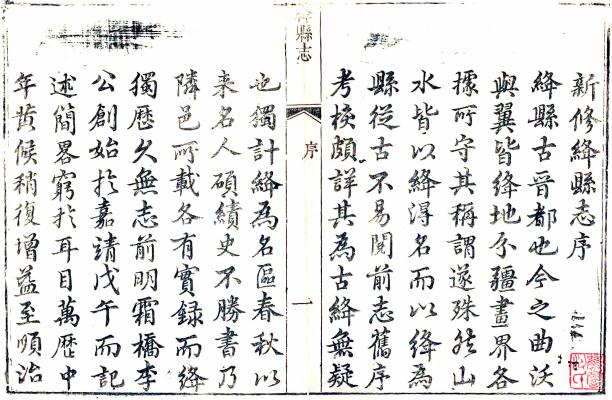 新修絳縣志序
絳縣古晉都也今之曲沃
與翼皆絳地分疆畫界各
據所守其稱謂遂殊然山
水皆以絳得名而以絳為
縣從古不易閱前志舊序
考核頗詳其為古絳無疑
縣志
序
一
也獨計絳為名區春秋以
来名人碩績史不勝書乃
隣邑所載各有實録而絳
獨歷久無志前明霜橋李
公創始於嘉靖戊午而記
述簡畧窮於耳目萬歴中
年黄候稍復增益至順治